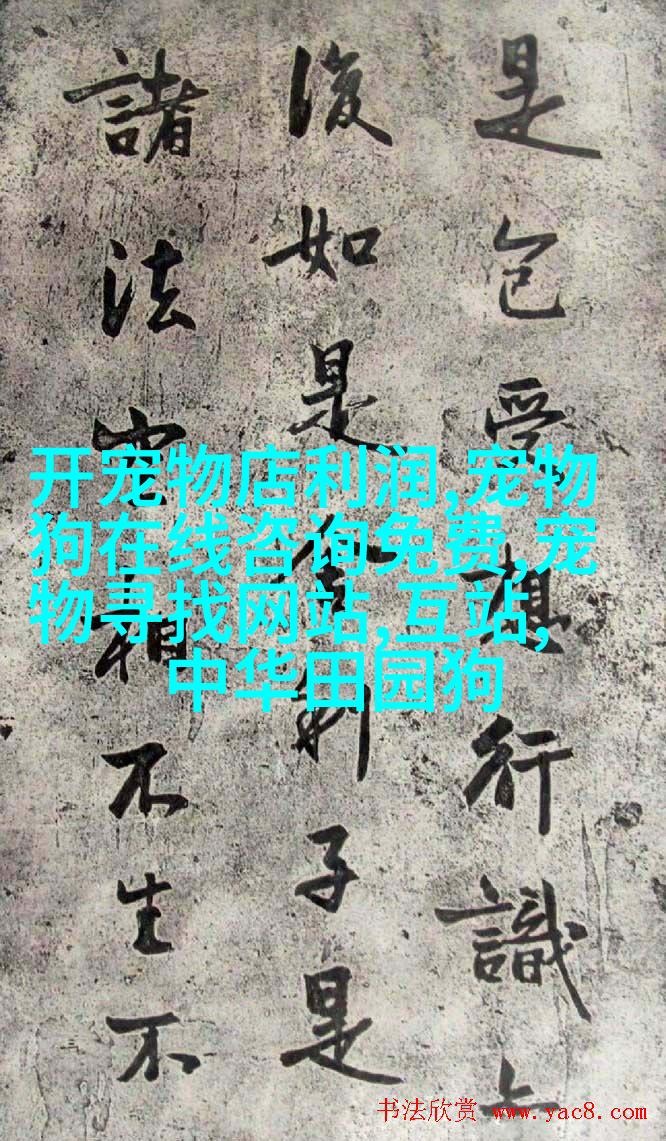 是色受想行識
復如是舍利子是
諸法空相不生不
开宠物店利润,宠物
狗在线咨询免费,宠
物寻找网站,互站,
中华田园狗
书法欣赏 www.yac8.com